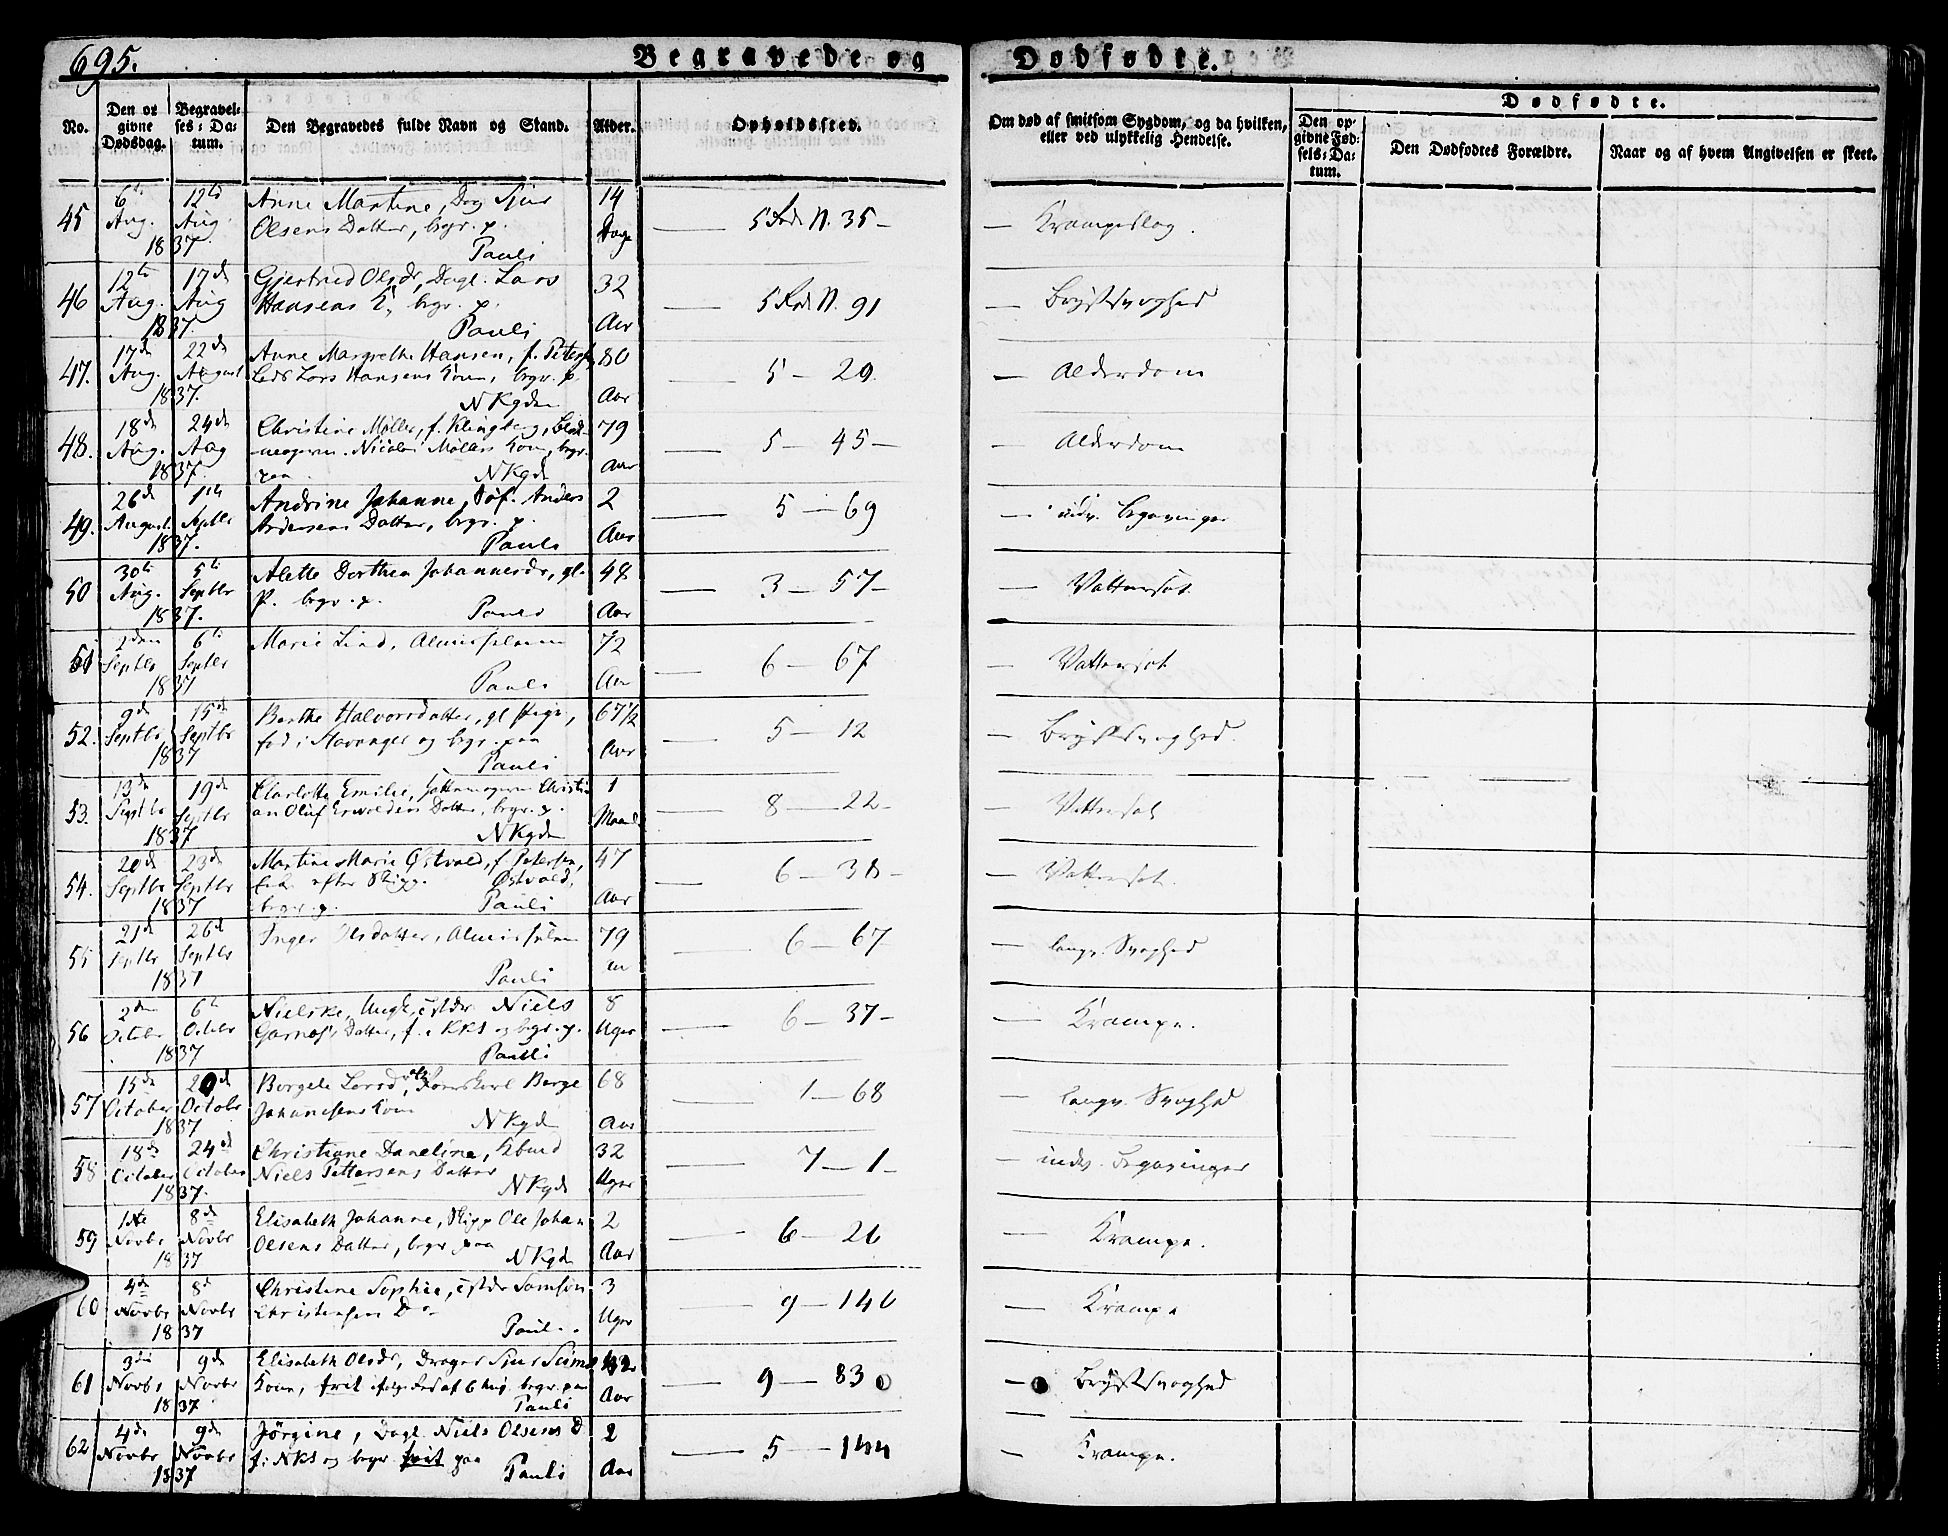 695.
Begravede og Dødfødte.
No.
Den opgivne Dødsdag.
Begravelses-Datum.
Den Begravedes fulde Navn og Stand.
Alder.
Opholdssted.
Om død af smitsom Sygdom, og da hvilken, eller ved ulykkelig Hendelse.
Dødfødte.
Den opgivne Fødsels-Datum.
Den Dødfødtes Forældre.
Naar og af hvem Angivelsen er skeet.
45 6te Aug. 12te Aug. 1837. Anne Martine, Dag Sjur
Olsens Datter, begr. p.
Pauli
14 Dage — 5 Rode N. 35 — — Krampeslag.
46 12te Aug. 17de Aug 1837. Gjertrud Olsdr, Dagl. Lars
Hansens K, begr. p.
Pauli
32 Aar — 5 Rode N. 91 — Brystsvaghed
47. 17de Aug. 22de August 1837. Anne Margrethe Hansen, f. Peters,
Lars Hansens Kone, begr. p.
NKgden
80 Aar — 5 — 29. — Alderdom
48. 18de Aug. 24de Aug 1837. Christine Møller, f. Klingberg,
Nicolai Møllers Kone, begr.
paa NKgd
79 Aar — 5 — 45 — — Alderdom
49. 26de August. 1ste Septbr 1837. Andrine Johanne, Søf. Anders
Andersens Datter, begr. p.
Pauli
2 Aar — 5 — 69 — indv. Begavninger
50 30te Aug. 5te Septbr 1837. Alette Dorthea Johannesdr, gl.
P. begr. p. Pauli
48 Aar — 3 — 57 — — Vattersot.
51 2den Septbr 6te Septbr 1837 Marie Lind, Almisselem
Pauli
72 Aar — 6 — 67 — Vattersot
52. 9de Septbr. 15de Septbr 1837 Berthe Halvorsdatter, gl Pige,
fød i Stavanger og begr. paa
Pauli
67 1/2 Aar — 5 — 12 — Brystsvaghed.
53. 13de Septbr 19de Septbr 1837 Charlotte Emilie, Christi
an Oluf Datter, begr. p.
NKgden
1 Maaned — 8 — 22 — — Vattersot
54. 20de Septbr 23de Septbr 1837 Martine Marie Østvold, f. Petersen,
Enke efter Skipp. Østvold,
begr. p. Pauli
47 Aar — 6 — 38 — — Vattersot.
55 21de Septbr 26de Septbr 1837 Inger Olsdatter, Almisselem
Pauli
79 — 6 — 67 — langv. Svaghed
56 2den Octbr 6te Octbr 1837 Nielske, Niels
Garnaas's Datter, f. i KKs og begr. p.
Pauli
8 Uger — 6 — 37 — — Krampe.
57 15de October 20de Octobr 1837 Borgele Larsd, Børge
Johannesens Kone
NKgd
68 Aar — 1 — 68 — langv. Svaghed
58 18de October 24de October 1837. Christiane Daneline,
Niels Pettersens Datter
NKgd
32 Uger — 7 — 1 — — indv. Begavninger
59 1ste Novbr 8de Novbr 1837 Elisabeth Johanne, Skipp Ole Johan
Olsens Datter, begr paa
NKgd
2 Aar — 6 — 26 — Krampe.
60 4de Novbr 8de Novbr 1837 Christine Sophie, Samson
Christensen D
Paul
3 Uger — 9 — 146 — Krampe
61 3die Novbr 9de Novbr 1837. Elisabeth Olsdr, Drager Sjur
Kone, frit begr. paa
Pauli
Aar — 9 — 83 — Brystsvaghed
62 4de Novbr 9de Novbr 1837 Jørgine, Dagl. Niels Olsens D
f. i NKs og begr frit paa
Pauli
2 Aar — 5 — 144 — Krampe.